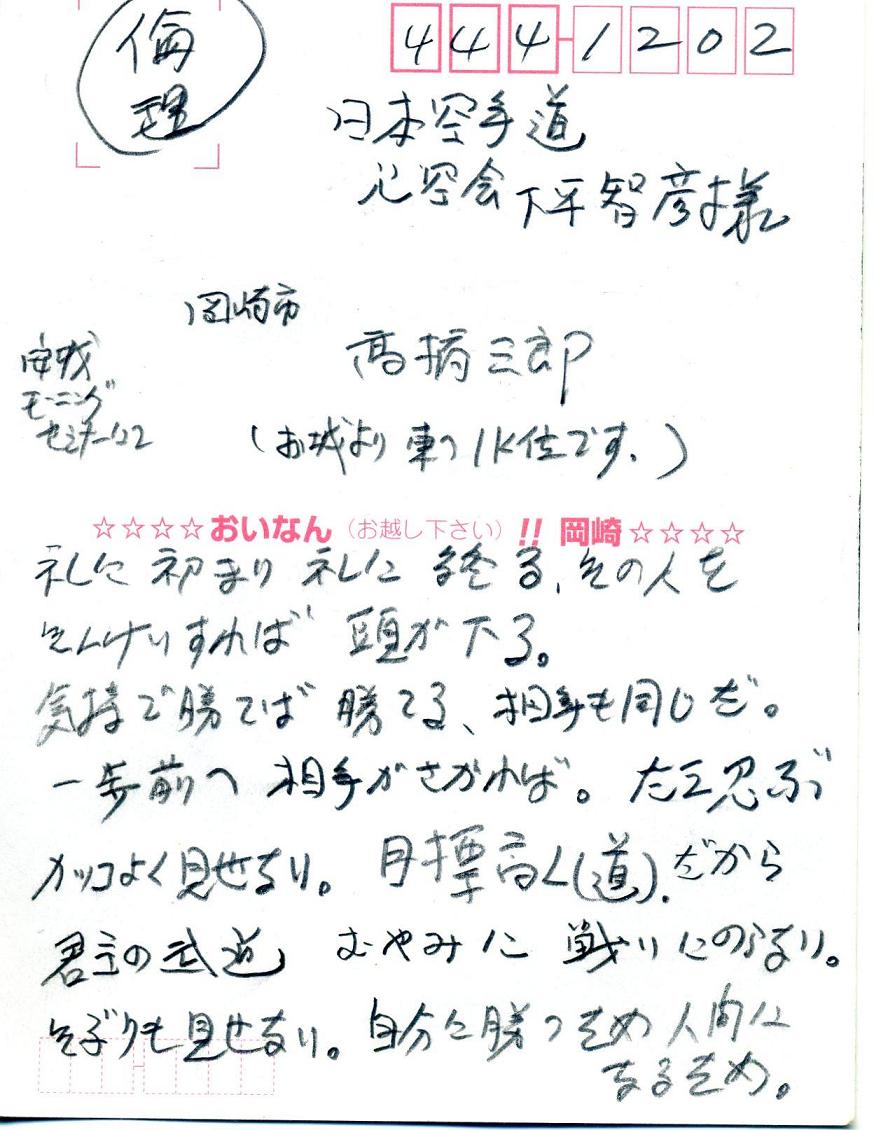 倫理
444-1202
日本空手道
心空会 下平智彦様
岡崎市
高橋三郎
安城
モーニング
セミナー
(お城より東へ1K位です。)
☆☆☆☆おいなん(お越し下さい)!! 岡崎☆☆☆☆
礼に初まり 礼に終る、その人を
そんけいすれば 頭が下る。
気持で勝てば 勝てる、相手も同じだ。
一歩前へ 相手がさがれば。たえ忍ぶ
カッコよく見せない。目標高く(道)、だから
君主の武道 むやみに 戦いにのらない。
そぶりも見せない。自分に勝つため 人間に
なるため。